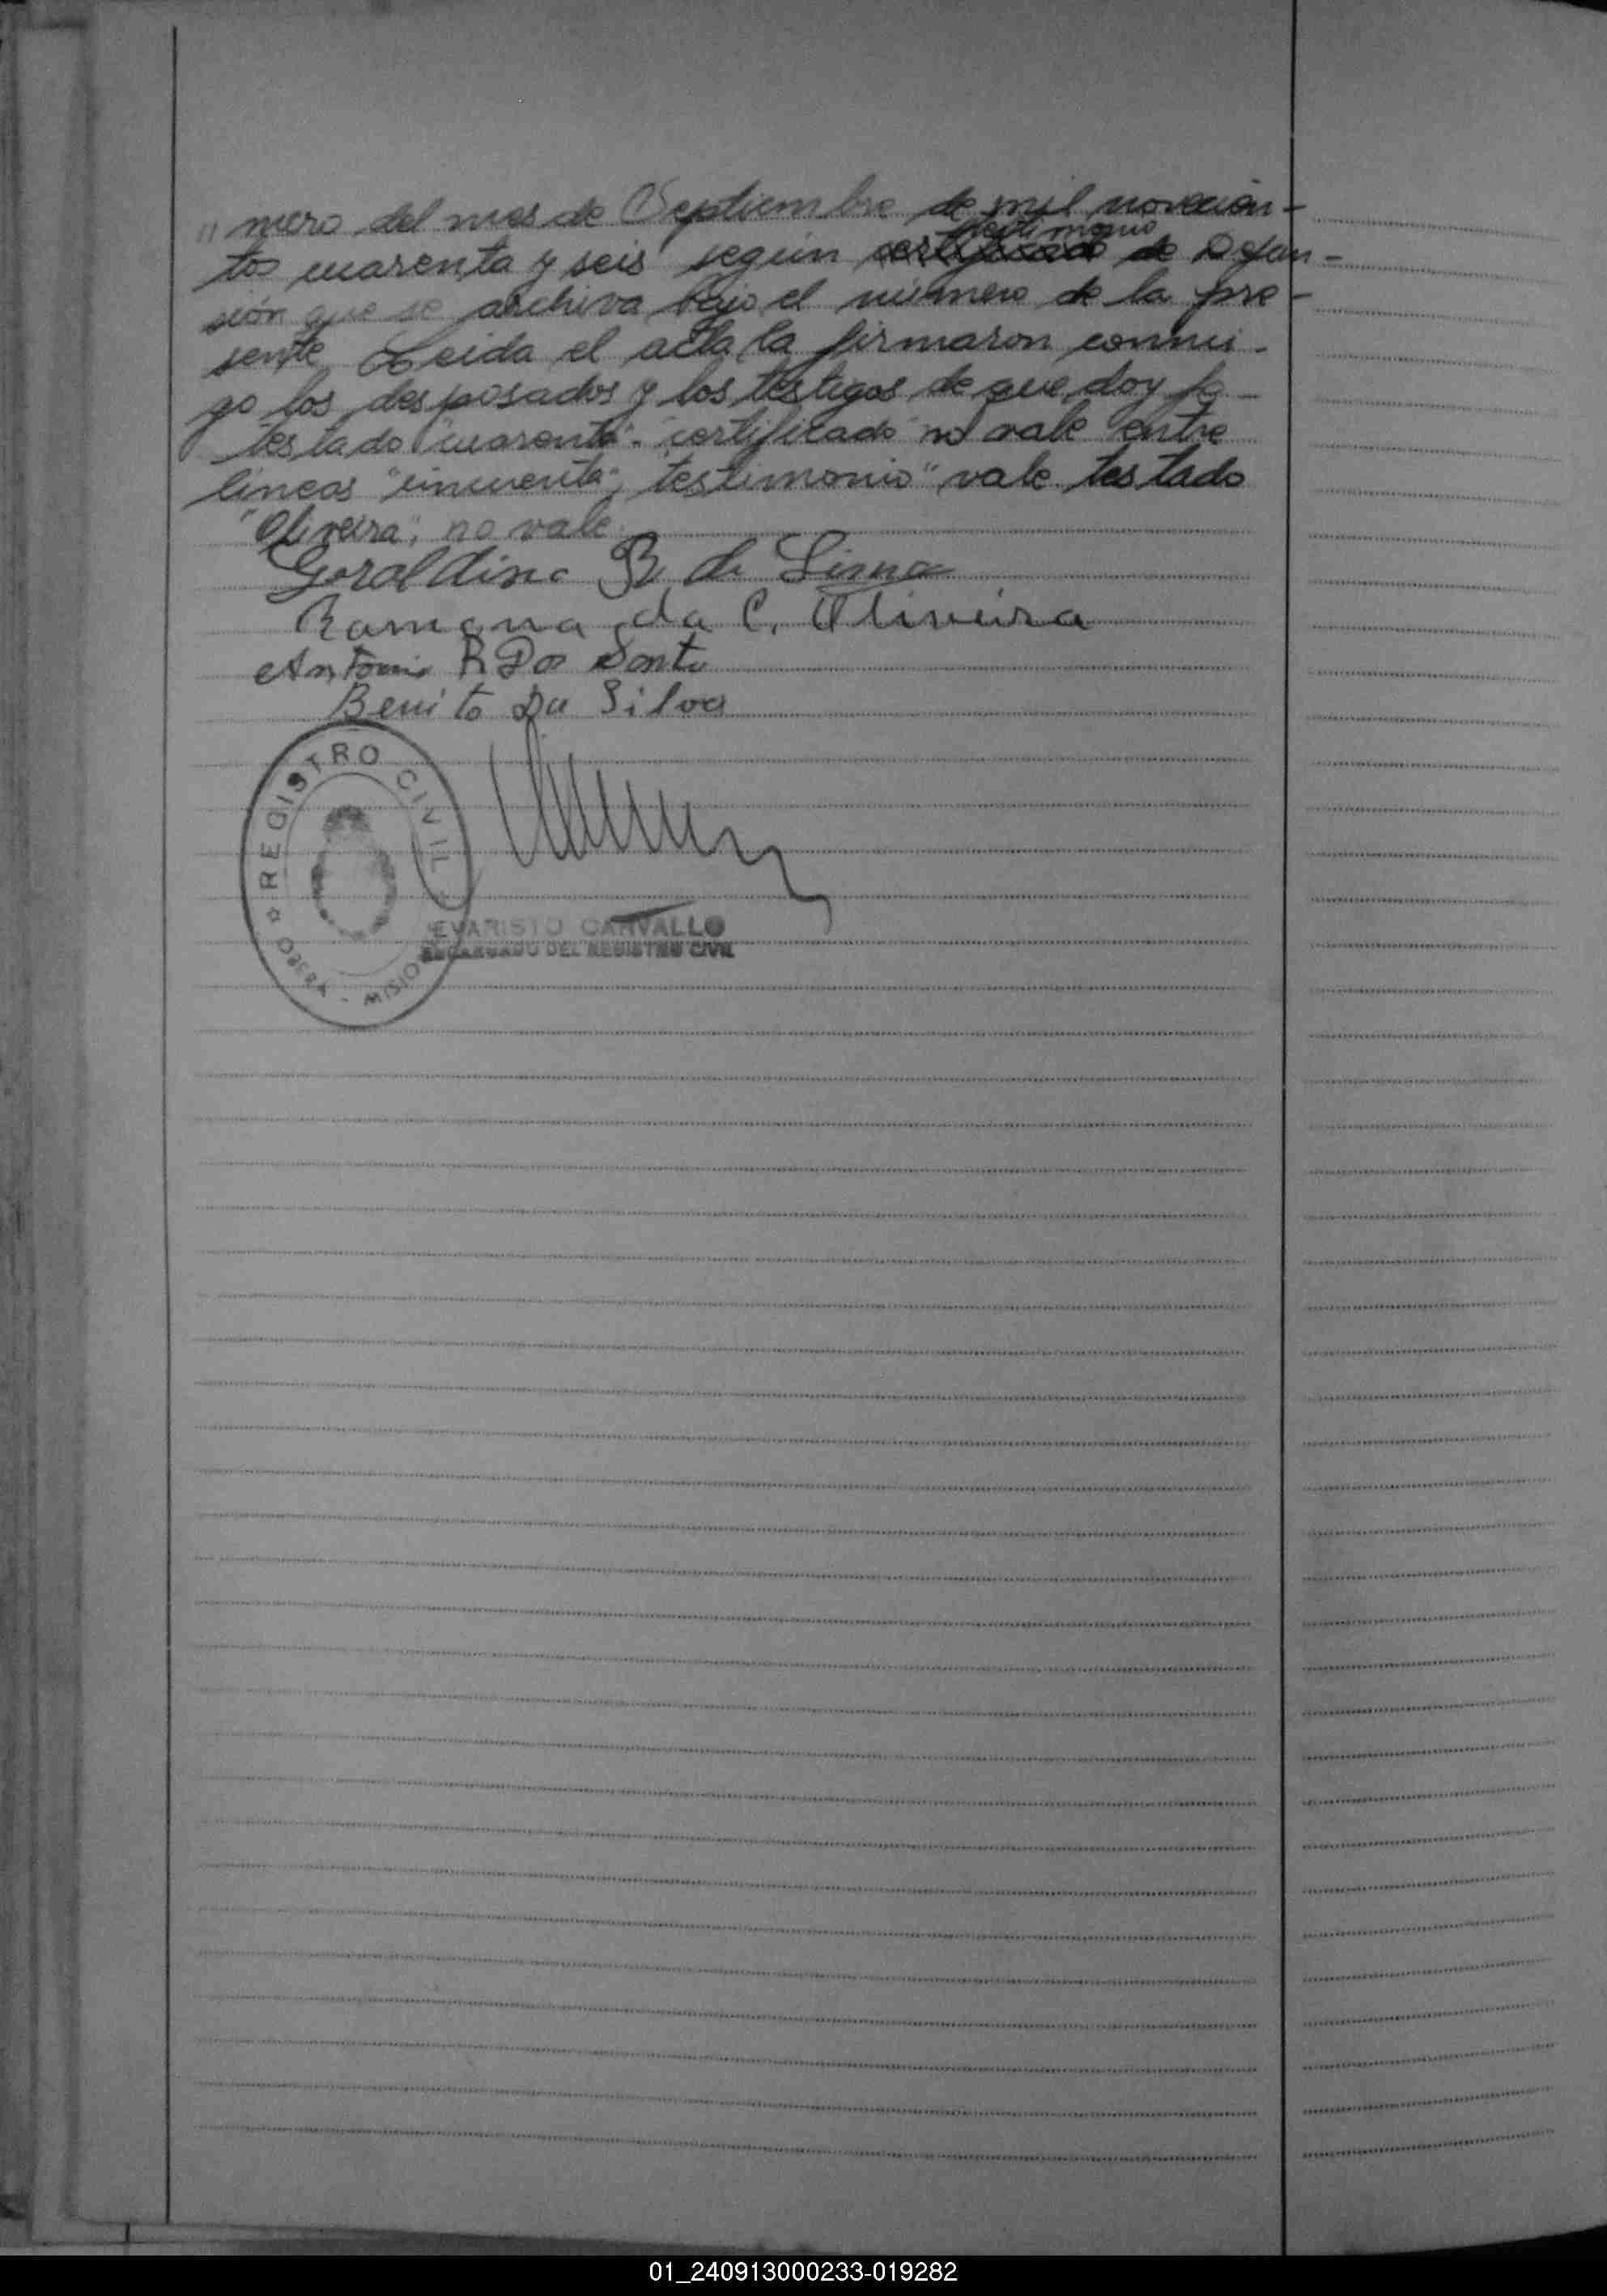 " mero del mes de Septiembre de mil novecien-
testimonio
tos cuarenta y seis según certificado de Defun-
sión que se archiva bajo el número de la pre-
sente Leida el acta la firmaron conmi-
go los desposados y los testigos de que doy fe-
testado "cuarenta". "certificado" no vale entre
lineas "cincuenta"; testimonio" vale testado
"Oliveira"; no vale.
Geraldino R de Lima
Ramona da C. Oliveira
Antonio R Dos Santo
Benito Da Silva
REGISTRO CIVIL
OBERA - MISIO
EVARISTO CARVALLO
ENCARGADO DEL REGISTRO CIVIL
01_240913000233-019282